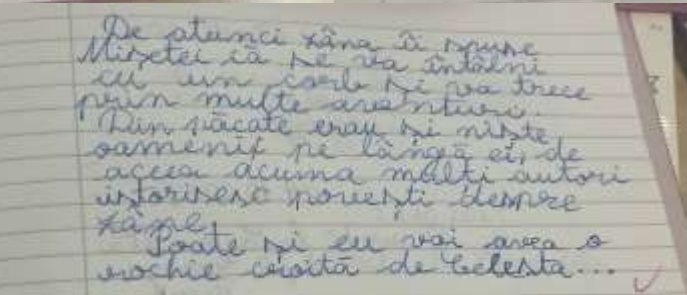 De atunci zâna îi spune
Miretei că se va întâlni
cu un corb și va trece
prin multe aventuri.
Din păcate erau și niște
oameni pe lângă ei, de
aceea acuma mulți autori
istorisesc povești despre
zâne.
Poate și eu voi avea o
rochie croită de Celesta...